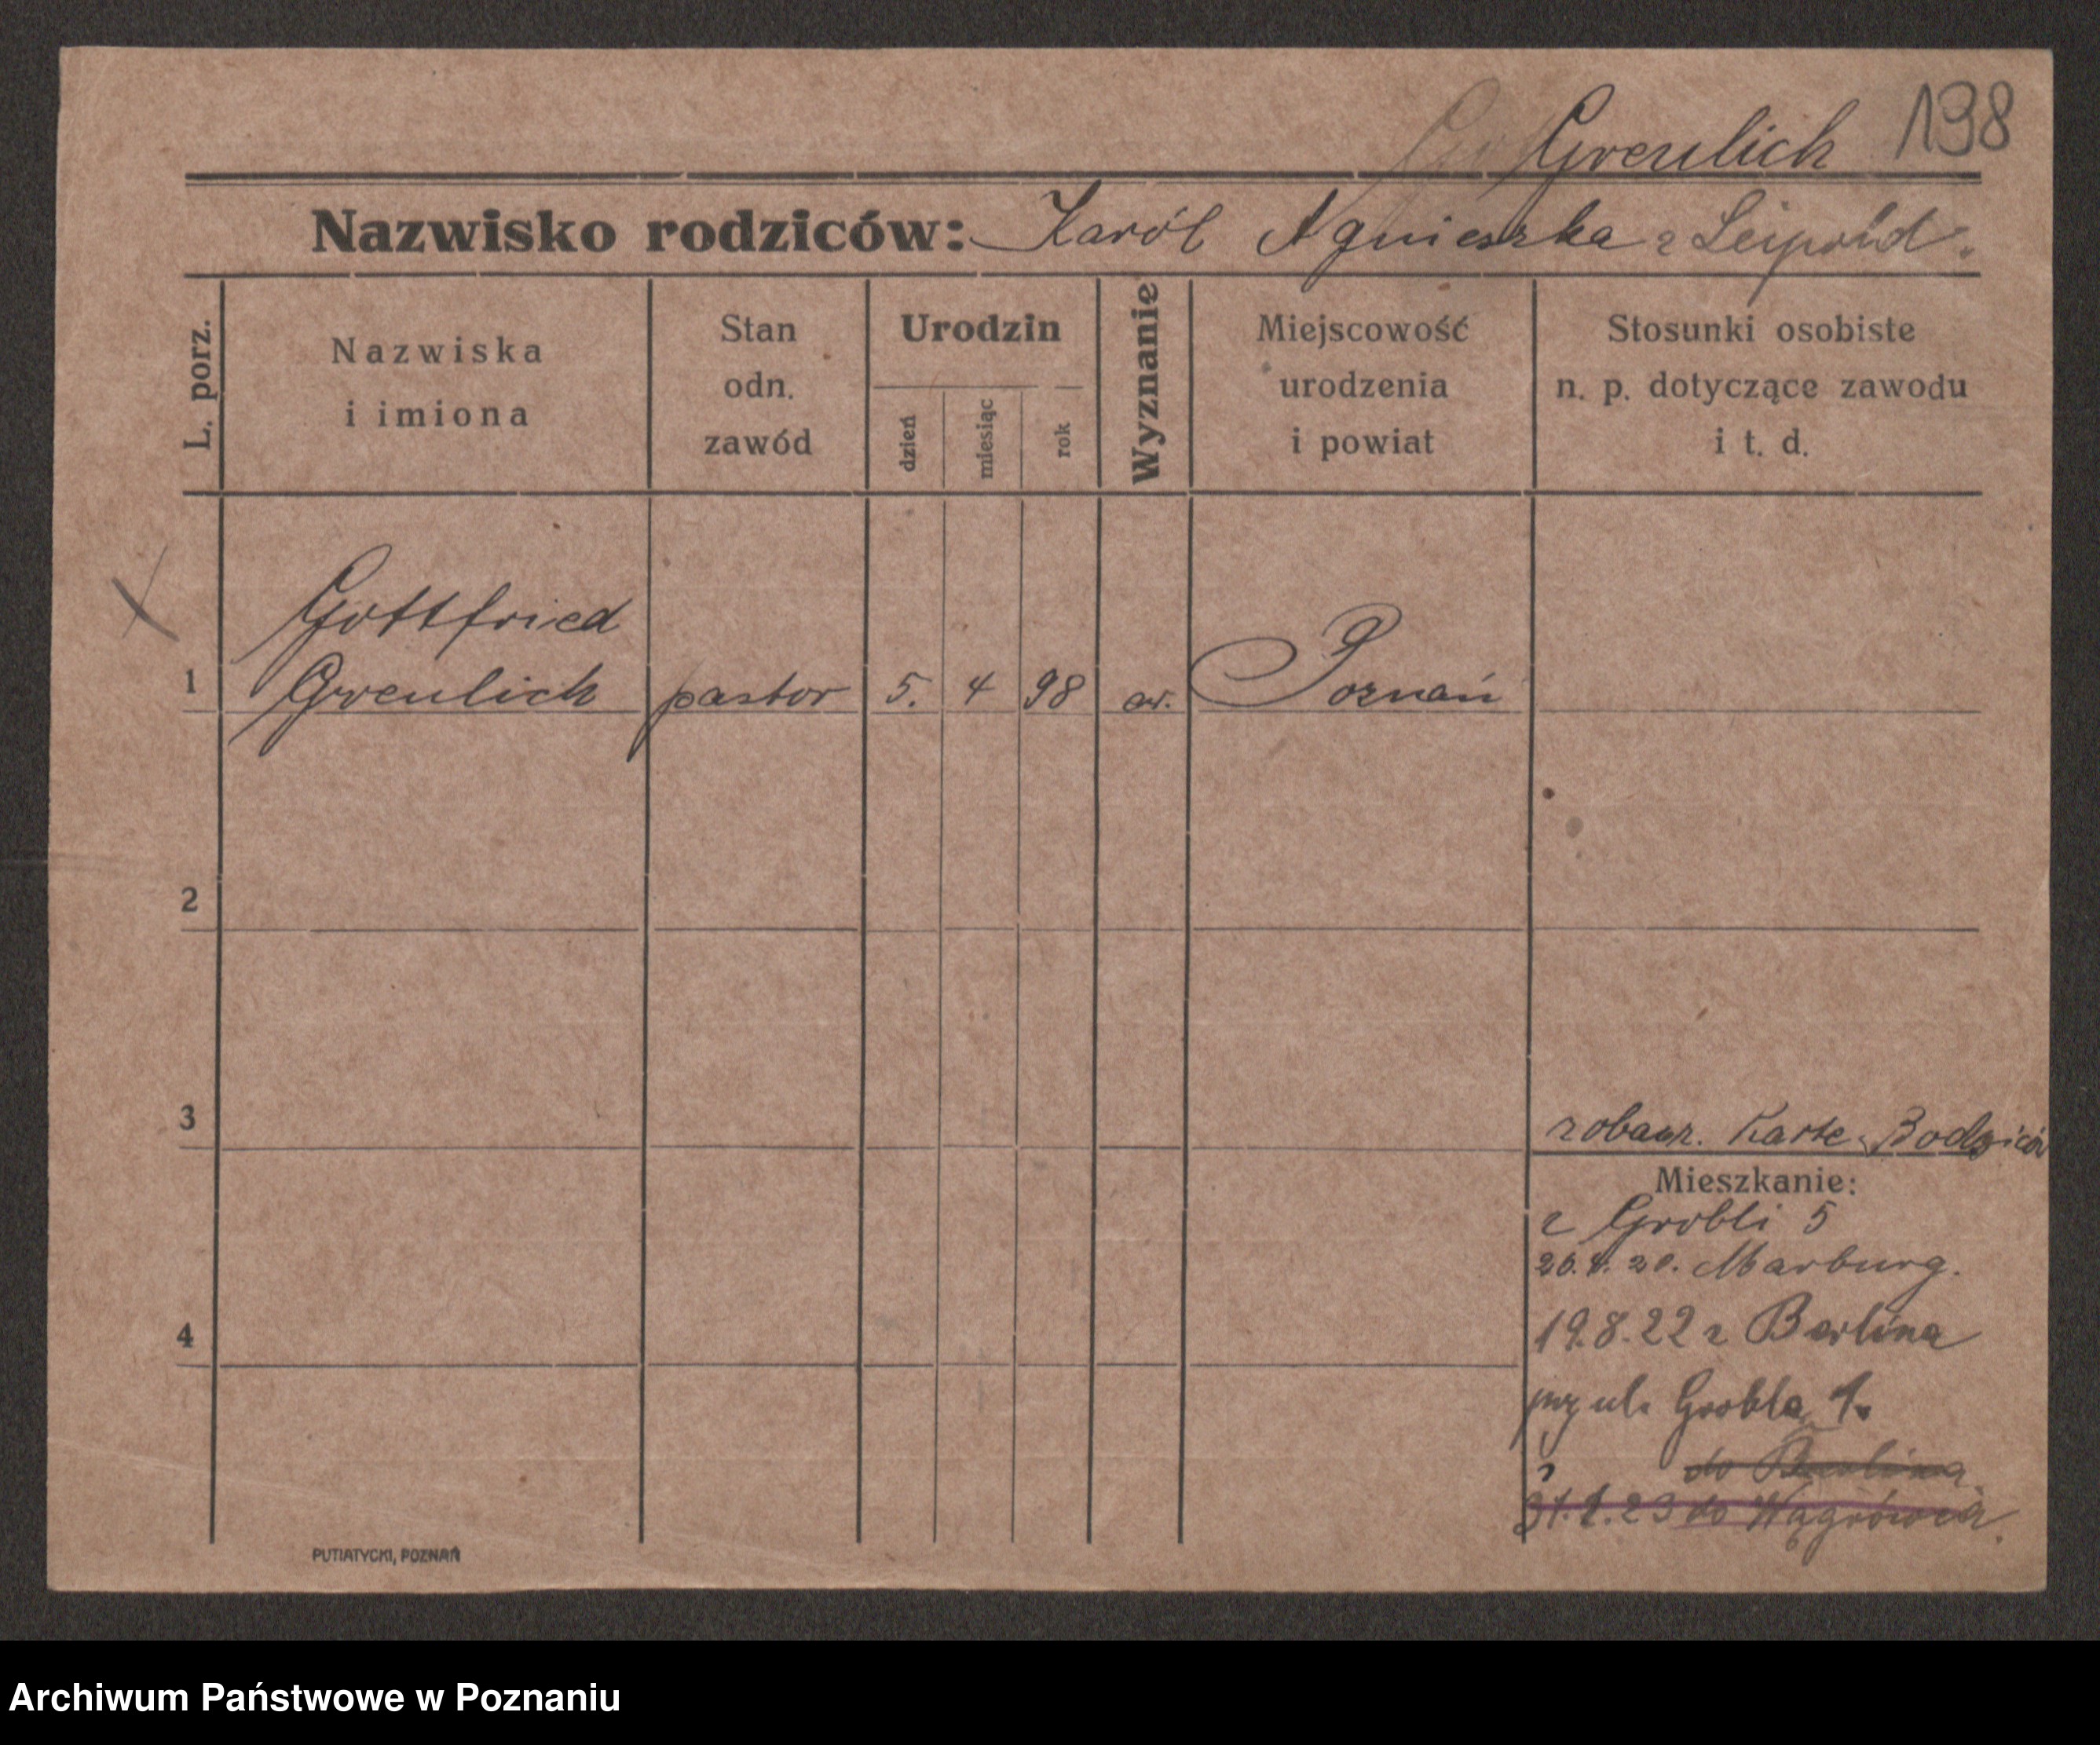 Greulich 198
Nazwisko rodziców: Karól Agnieszka z Leipold.
L. porz.
Nazwiska
i imiona
Stan
odn.
zawód
Urodzin
dzień
miesiąc
rok
Wyznanie
Miejscowość
urodzenia
i powiat
Stosunki osobiste
n. p. dotyczące zawodu
i t. d.
Gottfried
1 Greulich pastor 5. 4 98 ew. Poznań
2
3
zobacz. Karte Rodziców
Mieszkanie:
z Grobli 5
20. Marburg.
19.8.22 z Berlina
przy ul. Grobla 1.
4
do Berlina
23 do Wągrówca.
PUTIATYCKI, POZNAŃ
Archiwum Państwowe w Poznaniu